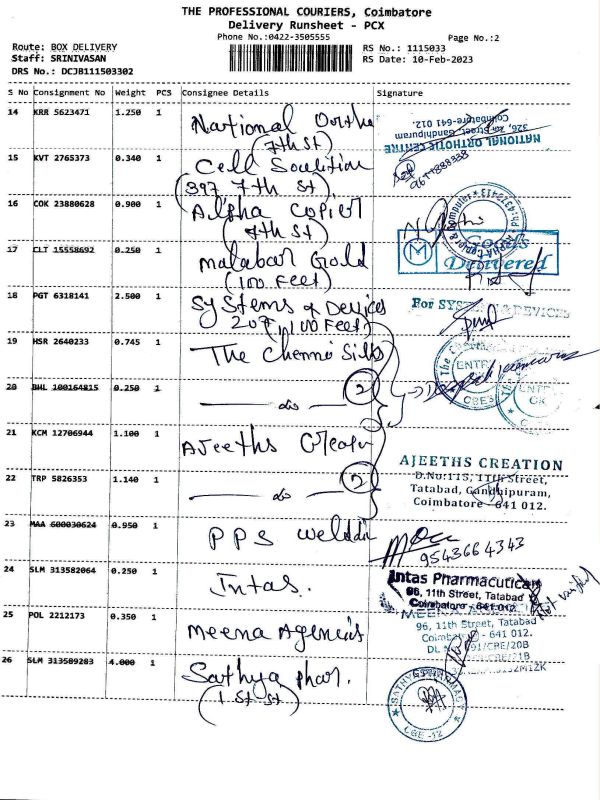 THE PROFESSIONAL COURIERS, Coimbatore
Delivery Runsheet - PCX
Phone No.:0422-3505555
Page No.:2
Route: BOX DELIVERY
Staff: SRINIVASAN
DRS No.: DCJB111503302
RS No.: 1115033
RS Date: 10-Feb-2023
S No Consignment No Weight PCS Consignee Details Signature
14 KRR 5623471 1.250 1 National Ortho
(7th St)
NATIONAL ORTHOTIC CENTRE
326, 7th Street, Gandhipuram
Coimbatore-641 012.
15 KVT 2765373 0.340 1 Cell Soulition
(397 7th St),
16 COK 23880628 0.900 1 Alpha Copier
(7th St)
17 CLT 15558692 0.250 1 Malabar Gold
(100 Feet)
Delivered
18 PGT 6318141 2.500 1 Systems & Devices
207, 100 Feet)
For SYSTEMS & DEVICES
19 HSR 2640233 0.745 1 The Chennai Silks
20 BHL 100164815 0.250 1 — do — 2
21 KCM 12706944 1.100 1 Ajeeths Creation
AJEETHS CREATION
D.No:115, 11th Street,
Tatabad, Gandhipuram,
Coimbatore-641 012.
22 TRP 5826353 1.140 1 — do — 2
23 MAA 600030624 0.950 1 PPS
9543664343
24 SLM 313582064 0.250 1 Intas.
Intas Pharmacutical
96, 11th Street, Tatabad
Coimbatore - 641 012.
25 POL 2212173 0.350 1 Meena Agencies
96, 11th Street, Tatabad
Coimbatore - 641 012.
26 SLM 313589283 4.000 1 Sathya phar.
(1st St)
CBE-12